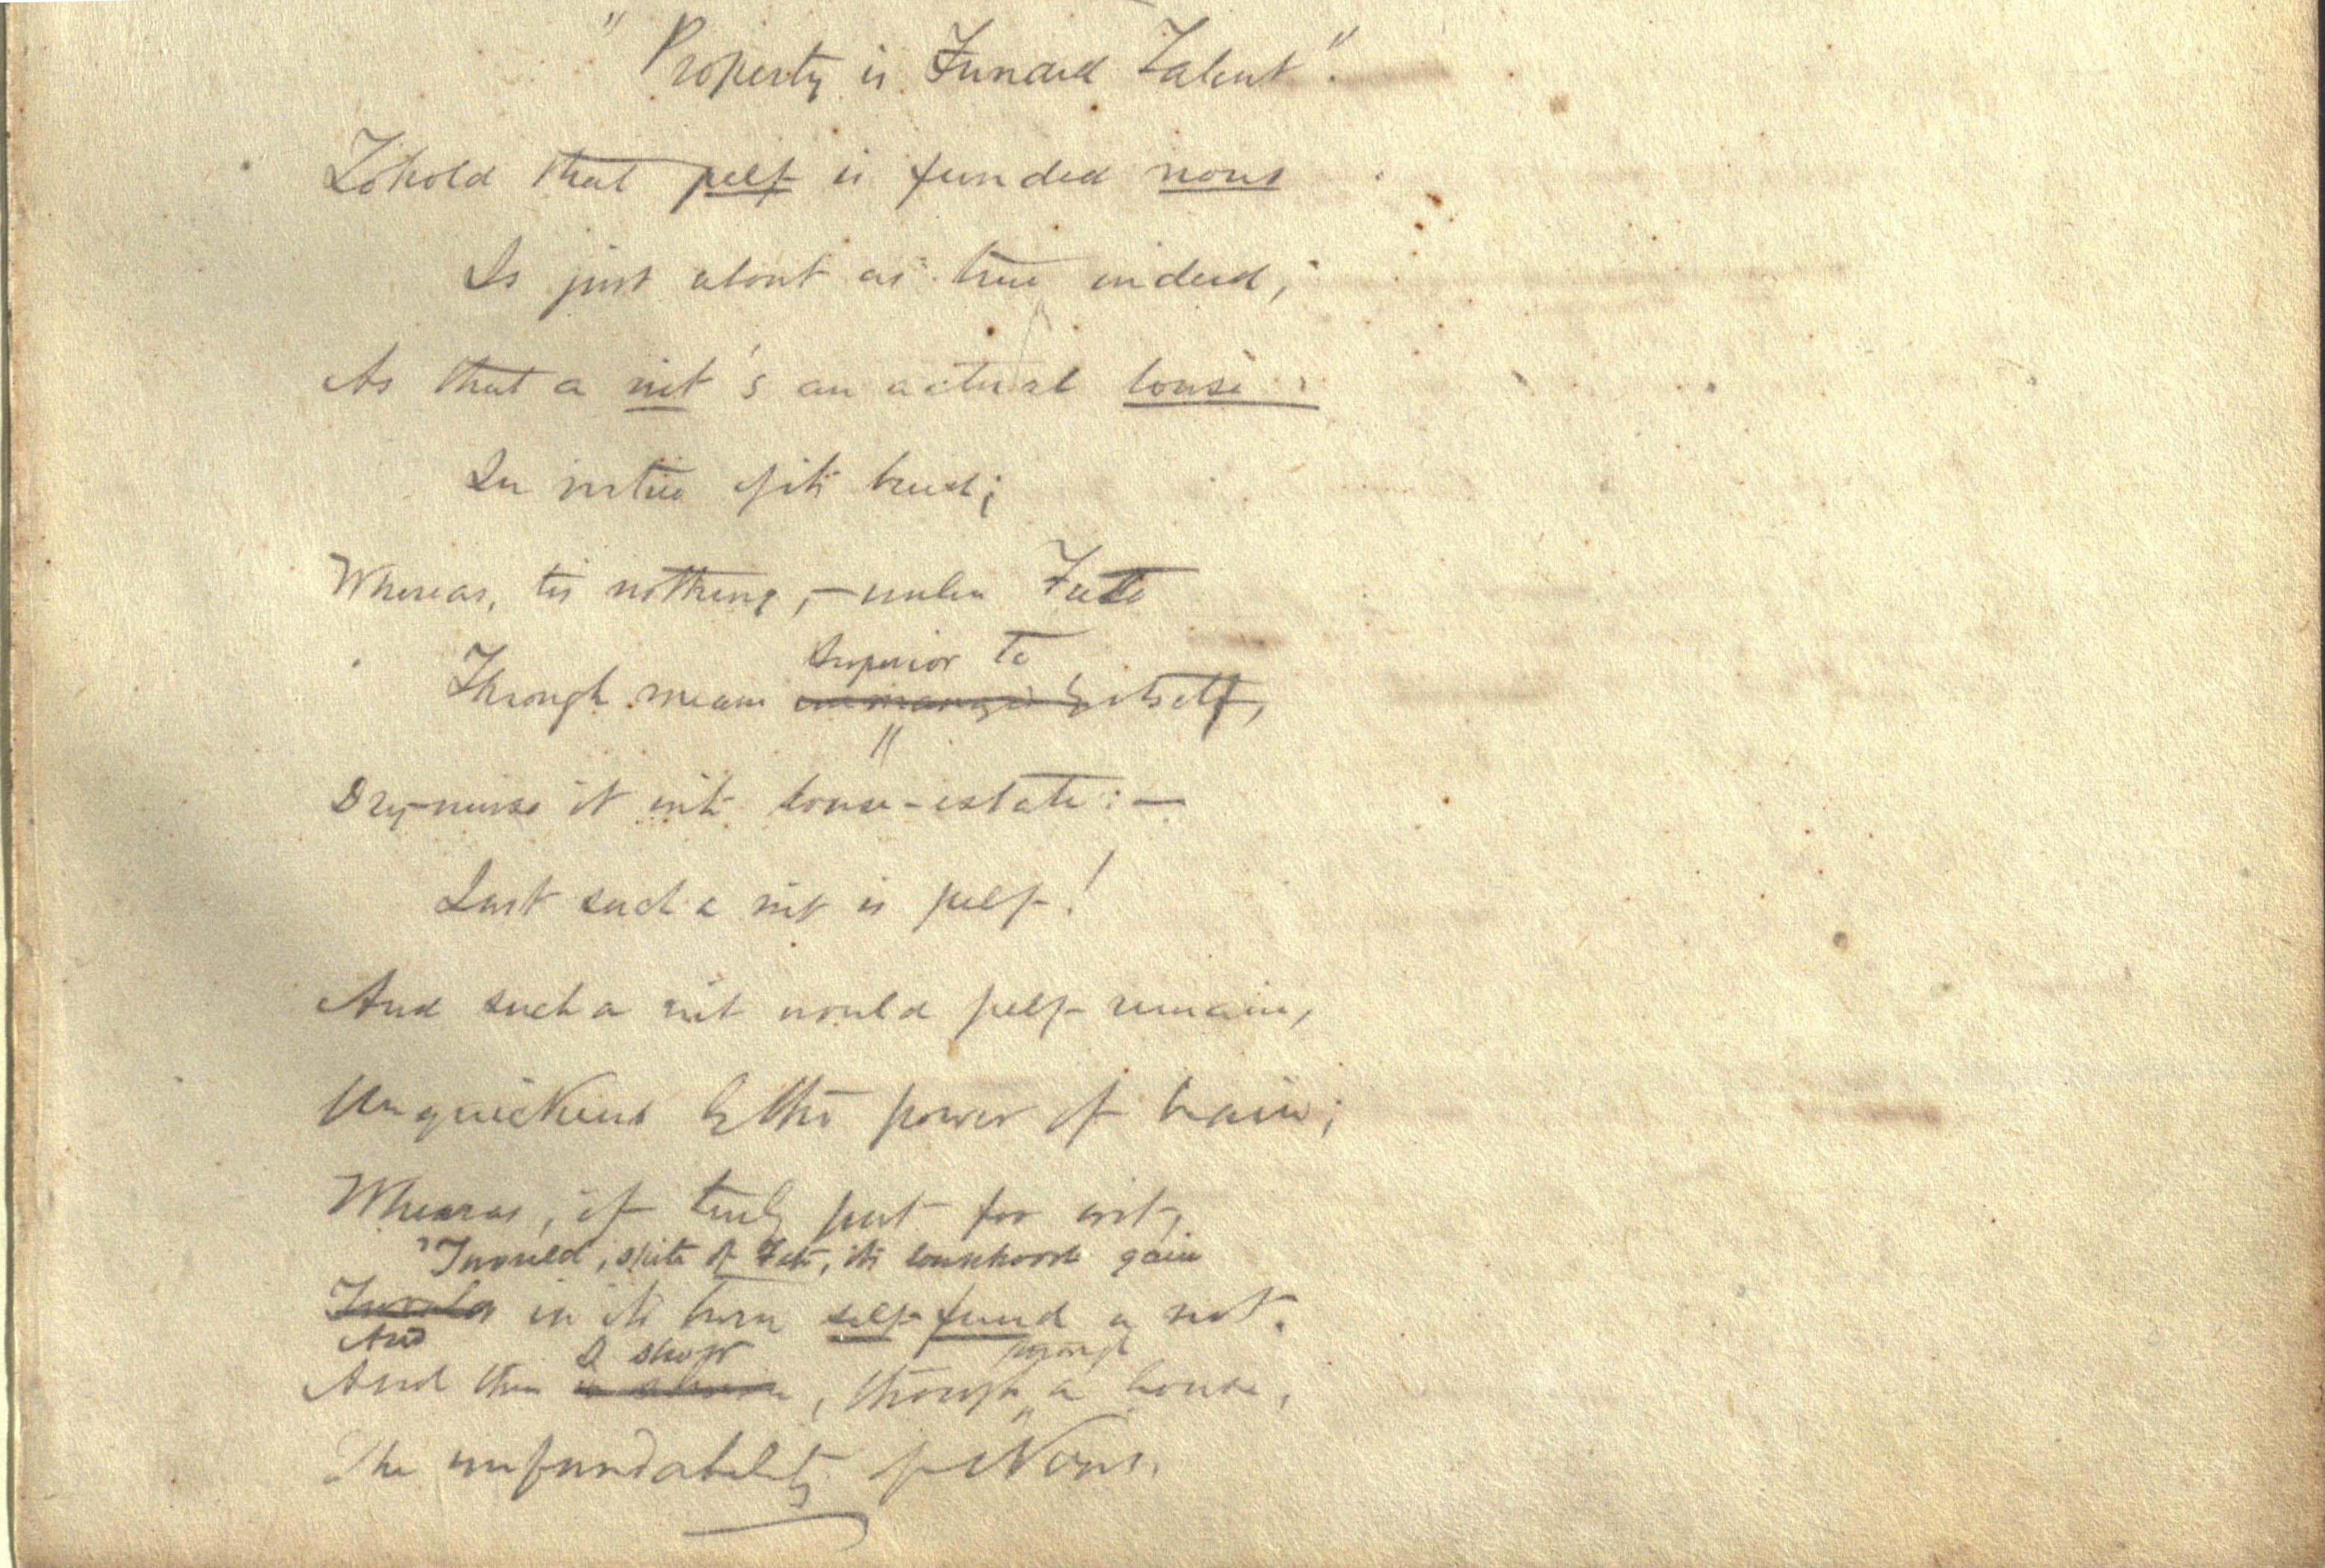 "Property is Funded Talent".
To hold that pelf is funded nous
Is just about as true indeed,
As that a nit's an actual louse:
In virtue of its breed;
Whereas, tis nothing, – unless Fate
Superior to
Through means itself,
Dry-nurse it into louse-estate: –
Just such a nit is pelf!
And such a nit would pelf remain,
Unquickened by the power of brain;
Whereas, if truly put for wit,
'Twould, spite of Fate, its lousehood gain
Twould in its turn self-fund a nit.
And I show
And thus , though a louse,
The unfundability of Nous.